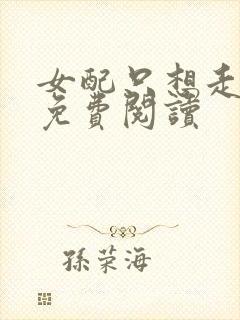 女配只想走
免費閱讀
孫荣海